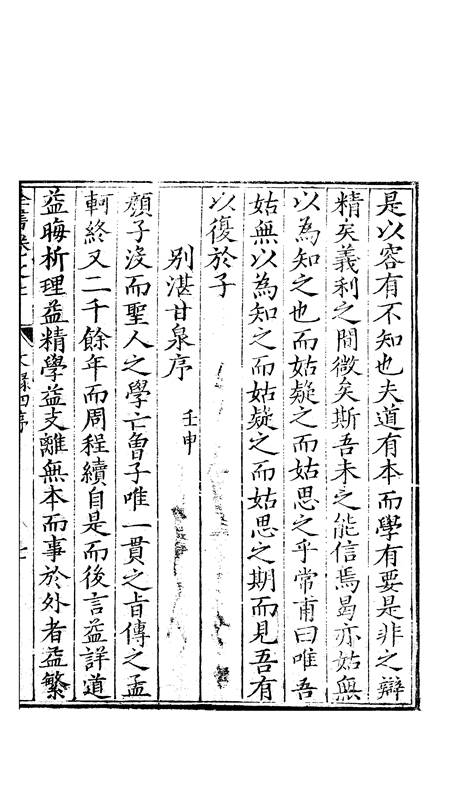 是以容有不知也夫道有本而學有要是非之辯
精矣義利之間微矣斯吾未之能信焉曷亦姑無
以為知之也而姑疑之而姑思之乎常甫曰唯吾
姑無以為知之而姑疑之而姑思之期而見吾有
以復於子
別湛甘泉序 壬申
顏子沒而聖人之學亡曾子唯一貫之旨傳之孟
軻終又二千餘年而周程續自是而後言益詳道
益晦析理益精學益支離無本而事於外者益繁
全書卷之七 文錄四序 七